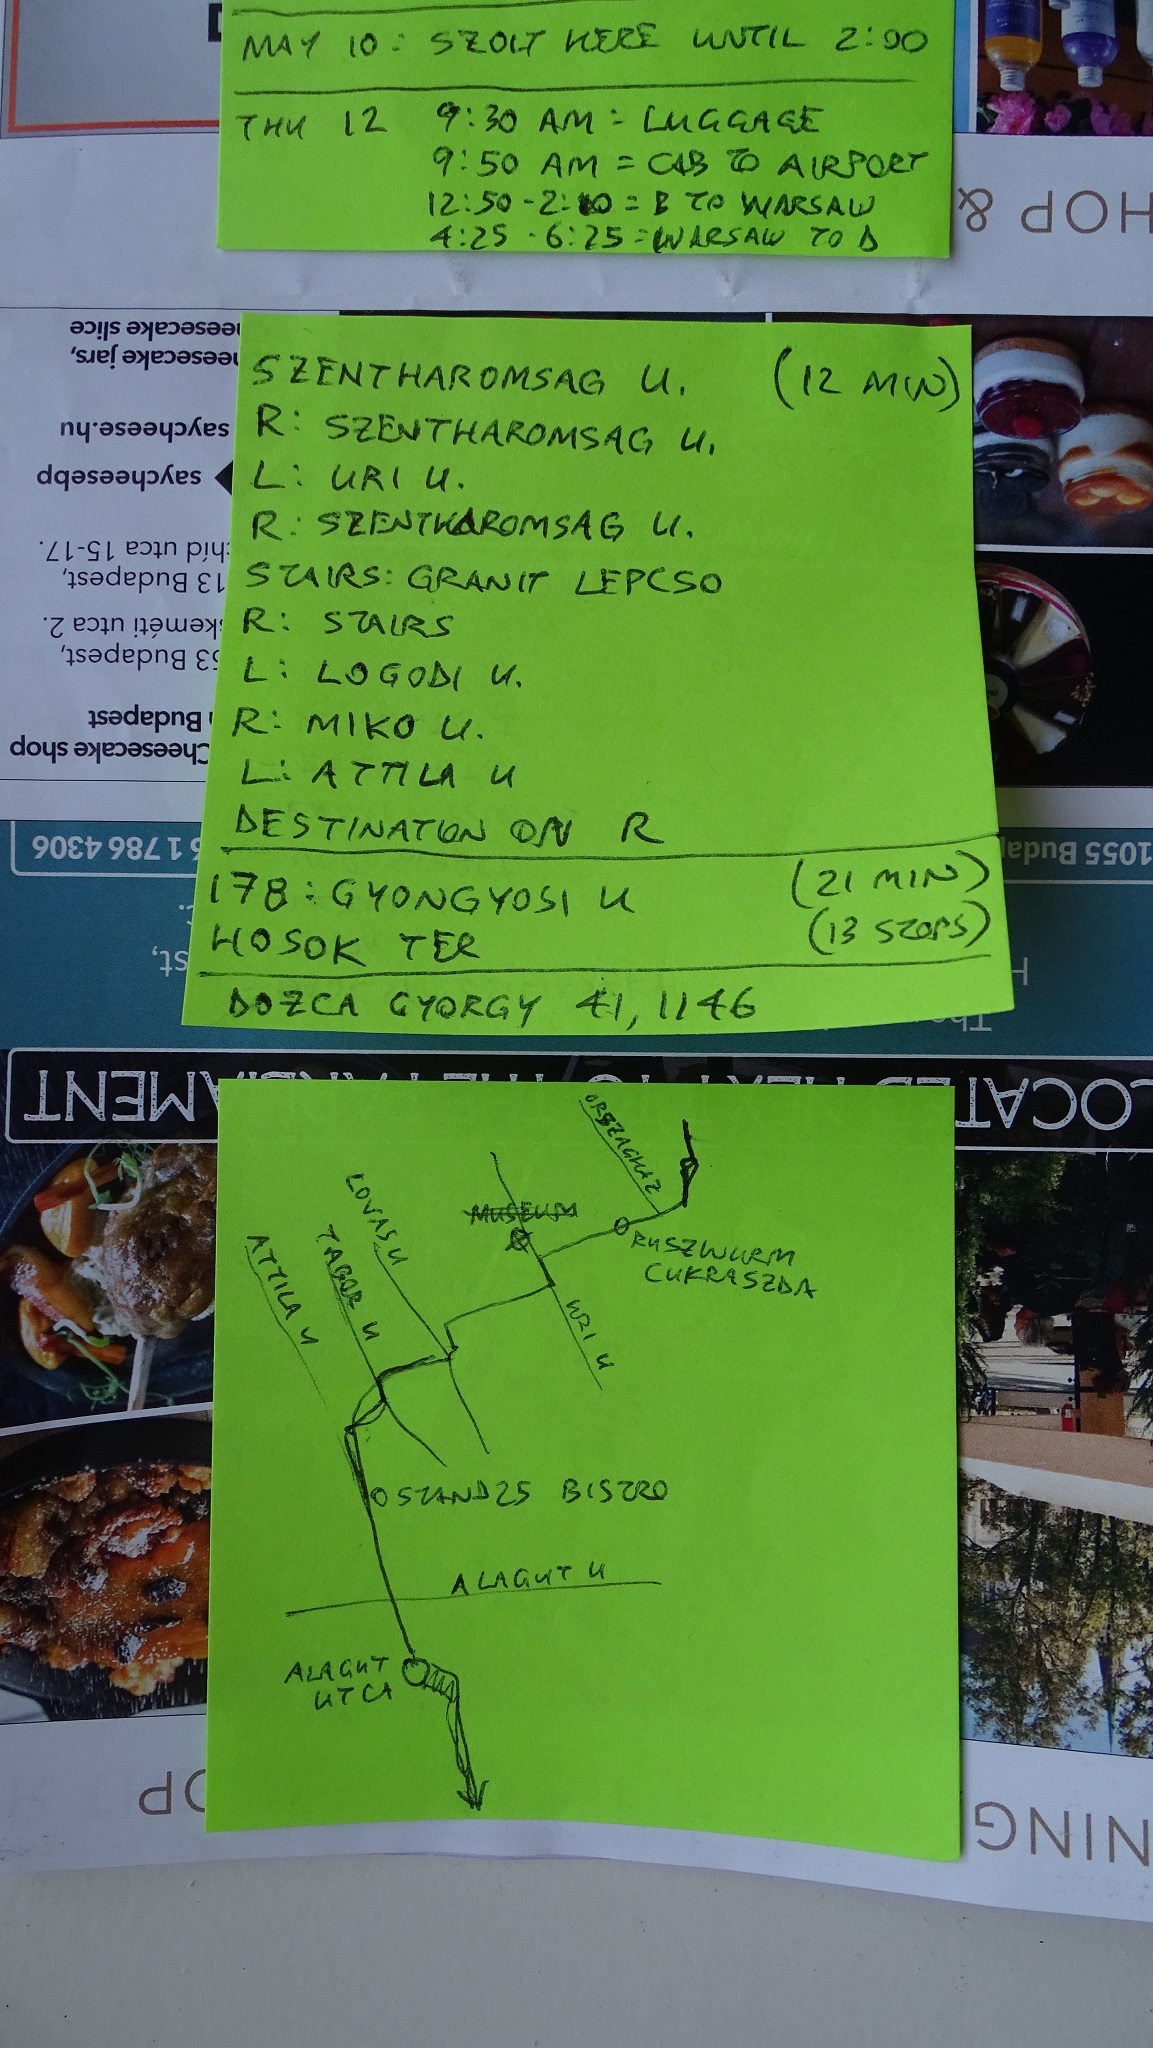 MAY 10: SZOLT HERE UNTIL 2:00
THU 12 9:30 AM = LUGGAGE
9:50 AM = CAB TO AIRPORT
12:50 - 2:10 = B TO WARSAW
4:25 - 6:25 = WARSAW TO D
HOP &
cheesecake slice
cheesecake jars,
saycheese.hu
saycheesebp
híd utca 15-17.
13 Budapest,
skeméti utca 2.
53 Budapest,
Budapest
Cheesecake shop
SZENTHAROMSAG U. (12 MIN)
R: SZENTHAROMSAG U.
L: URI U.
R: SZENTHAROMSAG U.
STAIRS: GRANIT LEPCSO
R: STAIRS
L: LOGODI U.
R: MIKO U.
L: ATTILA U
DESTINATION ON R
1 786 4306
1055 Budap
178: GYONGYOSI U (21 MIN)
HOSOK TER (13 STOPS)
DOZCA GYORGY 41, 1146
LOCATED NEXT TO THE PARLIAMENT
ORSZAGHAZ
MUSEUM
RUSZWURM
CUKRASZDA
LOVAS U
TABOR U
ATTILA U
URI U
STAND25 BISTRO
ALAGUT U
ALAGUT
UTCA
NING
OP